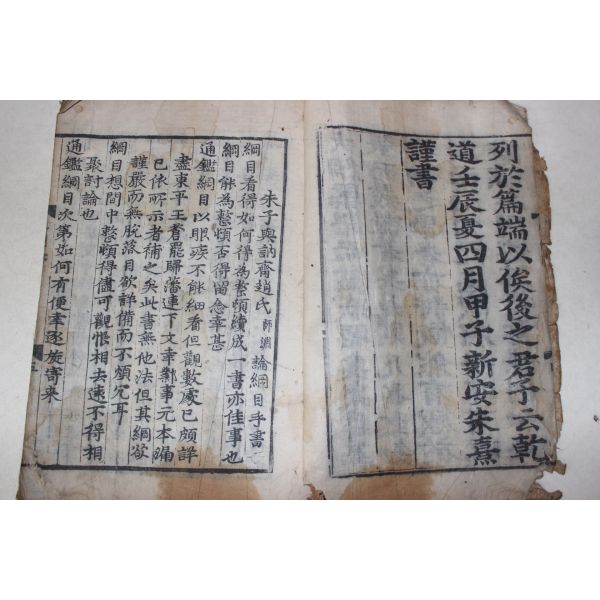 列於篇端以俟後之君子云乾
道壬辰夏四月甲子新安朱熹
謹書
朱子與訥齋趙氏師淵論綱目手書
綱目看得如何得為整頓續成一書亦佳事也
綱目能為整頓否得留念幸甚
通鑑綱目以眼疾不能細看但觀數處已頗詳
盡東平王蒼罷歸藩連下文幸鄴事元本漏
已依所示者補之矣此書無他法但其綱欲
謹嚴而無脫落目欲詳備而不煩冗耳
綱目想閒中整頓得儘可觀恨相去遠不得相
聚討論也
通鑑綱目次第如何有便幸逐旋寄來